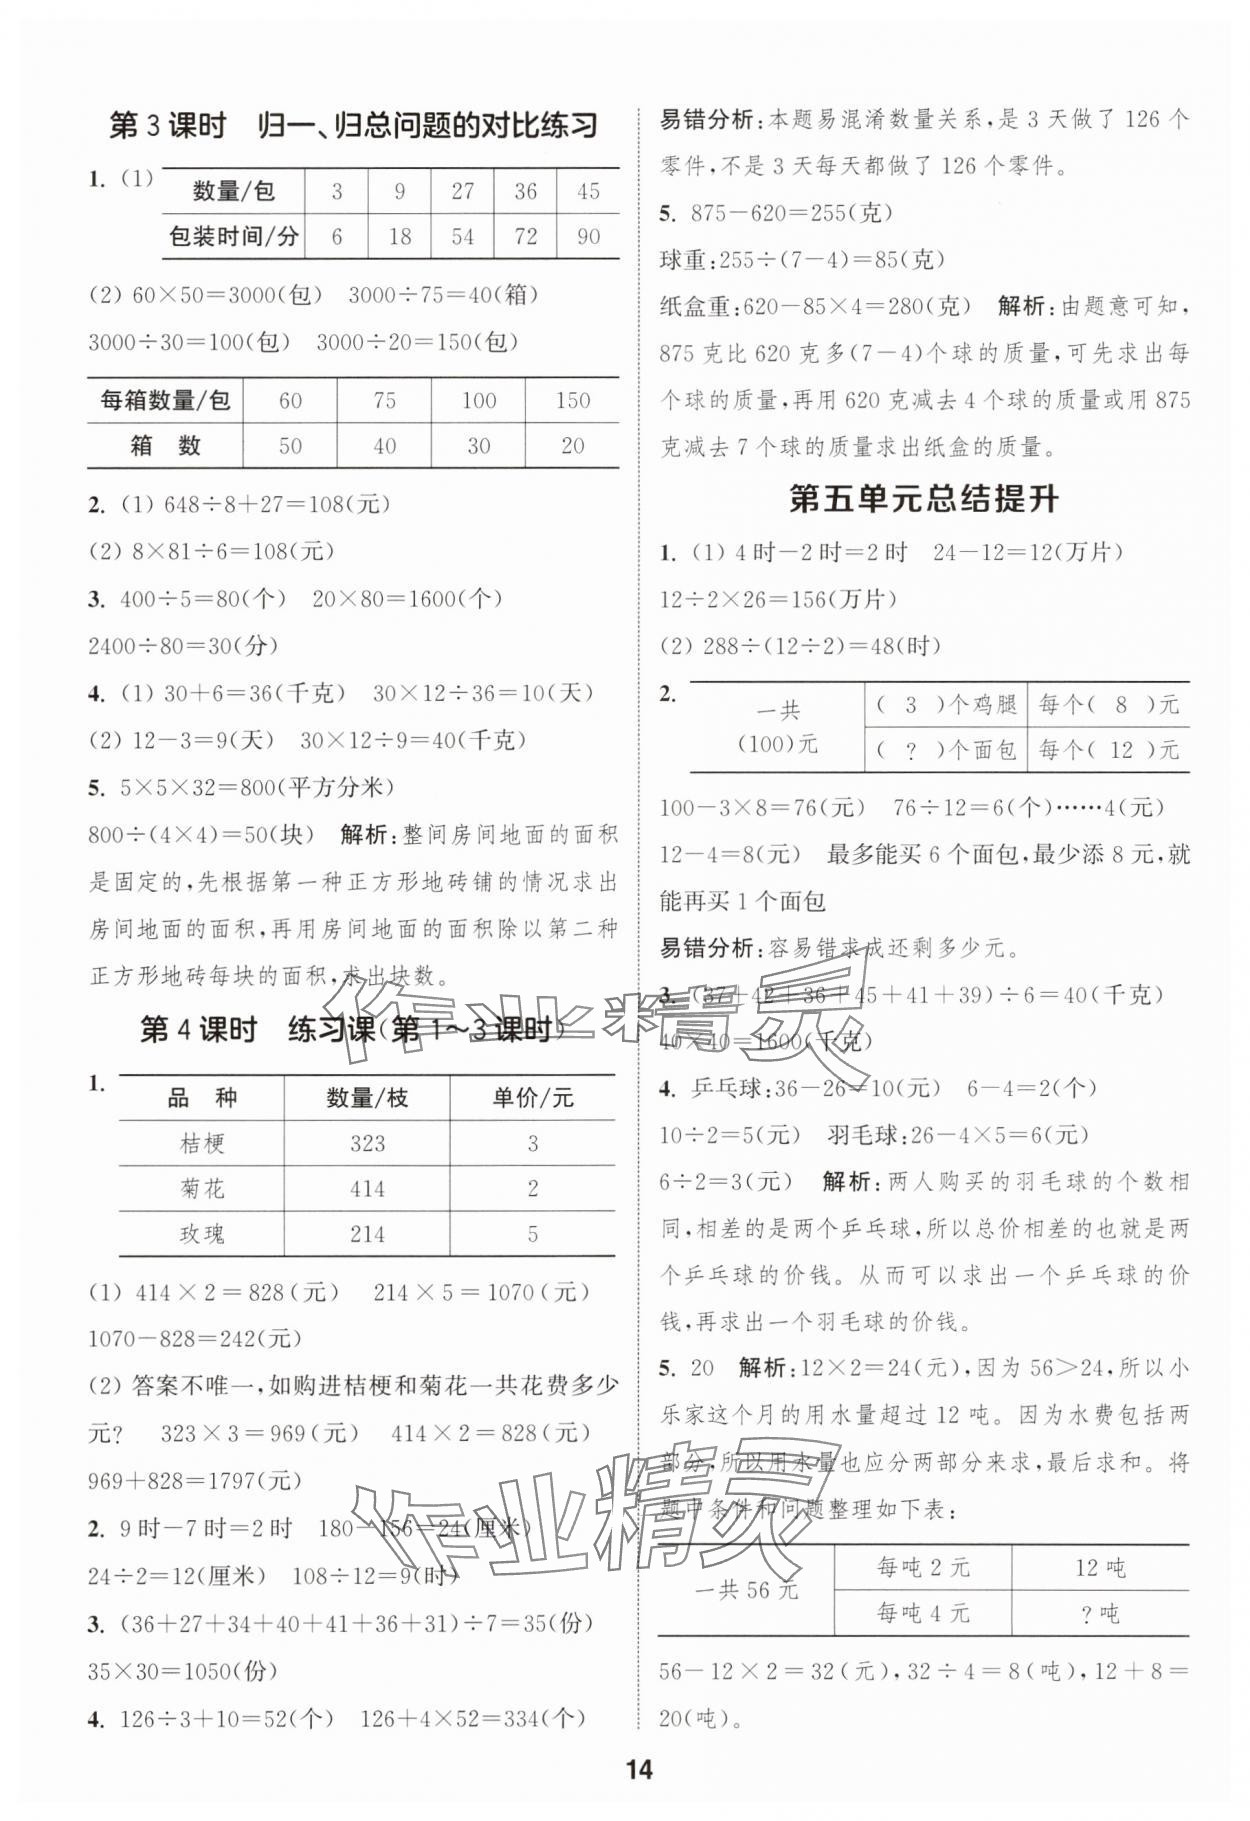 第 3 课时　归一、归总问题的对比练习
1. (1) 数量/包 3 9 27 36 45
包装时间/分 6 18 54 72 90
(2) 60×50=3000(包)　3000÷75=40(箱)
3000÷30=100(包)　3000÷20=150(包)
每箱数量/包 60 75 100 150
箱　数 50 40 30 20
2. (1) 648÷8+27=108(元)
(2) 8×81÷6=108(元)
3. 400÷5=80(个)　20×80=1600(个)
2400÷80=30(分)
4. (1) 30+6=36(千克)　30×12÷36=10(天)
(2) 12-3=9(天)　30×12÷9=40(千克)
5. 5×5×32=800(平方分米)
800÷(4×4)=50(块)　解析:整间房间地面的面积
是固定的,先根据第一种正方形地砖铺的情况求出
房间地面的面积,再用房间地面的面积除以第二种
正方形地砖每块的面积,求出块数。
第 4 课时　练习课(第 1～3 课时)
1.
品　种 数量/枝 单价/元
桔梗 323 3
菊花 414 2
玫瑰 214 5
(1) 414×2=828(元)　214×5=1070(元)
1070-828=242(元)
(2) 答案不唯一,如购进桔梗和菊花一共花费多少
元?　323×3=969(元)　414×2=828(元)
969+828=1797(元)
2. 9 时-7 时=2 时　180-156=24(厘米)
24÷2=12(厘米)　108÷12=9(时)
3. (36+27+34+40+41+36+31)÷7=35(份)
35×30=1050(份)
4. 126÷3+10=52(个)　126+4×52=334(个)
易错分析:本题易混淆数量关系,是 3 天做了 126 个
零件,不是 3 天每天都做了 126 个零件。
5. 875-620=255(克)
球重:255÷(7-4)=85(克)
纸盒重:620-85×4=280(克)　解析:由题意可知,
875 克比 620 克多(7-4)个球的质量,可先求出每
个球的质量,再用 620 克减去 4 个球的质量或用 875
克减去 7 个球的质量求出纸盒的质量。
第五单元总结提升
1. (1) 4 时-2 时=2 时　24-12=12(万片)
12÷2×26=156(万片)
(2) 288÷(12÷2)=48(时)
2.
一共
(100)元
( 3 )个鸡腿 每个( 8 )元
( ? )个面包 每个( 12 )元
100-3×8=76(元)　76÷12=6(个)……4(元)
12-4=8(元)　最多能买 6 个面包,最少添 8 元,就
能再买 1 个面包
易错分析:容易错求成还剩多少元。
3. (37+42+36+45+41+39)÷6=40(千克)
40×40=1600(千克)
4. 乒乓球:36-26=10(元)　6-4=2(个)
10÷2=5(元)　羽毛球:26-4×5=6(元)
6÷2=3(元)　解析:两人购买的羽毛球的个数相
同,相差的是两个乒乓球,所以总价相差的也就是两
个乒乓球的价钱。从而可以求出一个乒乓球的价
钱,再求出一个羽毛球的价钱。
5. 20　解析:12×2=24(元),因为 56>24,所以小
乐家这个月的用水量超过 12 吨。因为水费包括两
部分,所以用水量也应分两部分来求,最后求和。将
题中条件和问题整理如下表:
一共 56 元
每吨 2 元 12 吨
每吨 4 元 ? 吨
56-12×2=32(元),32÷4=8(吨),12+8=
20(吨)。
作业精灵
作业精灵
14